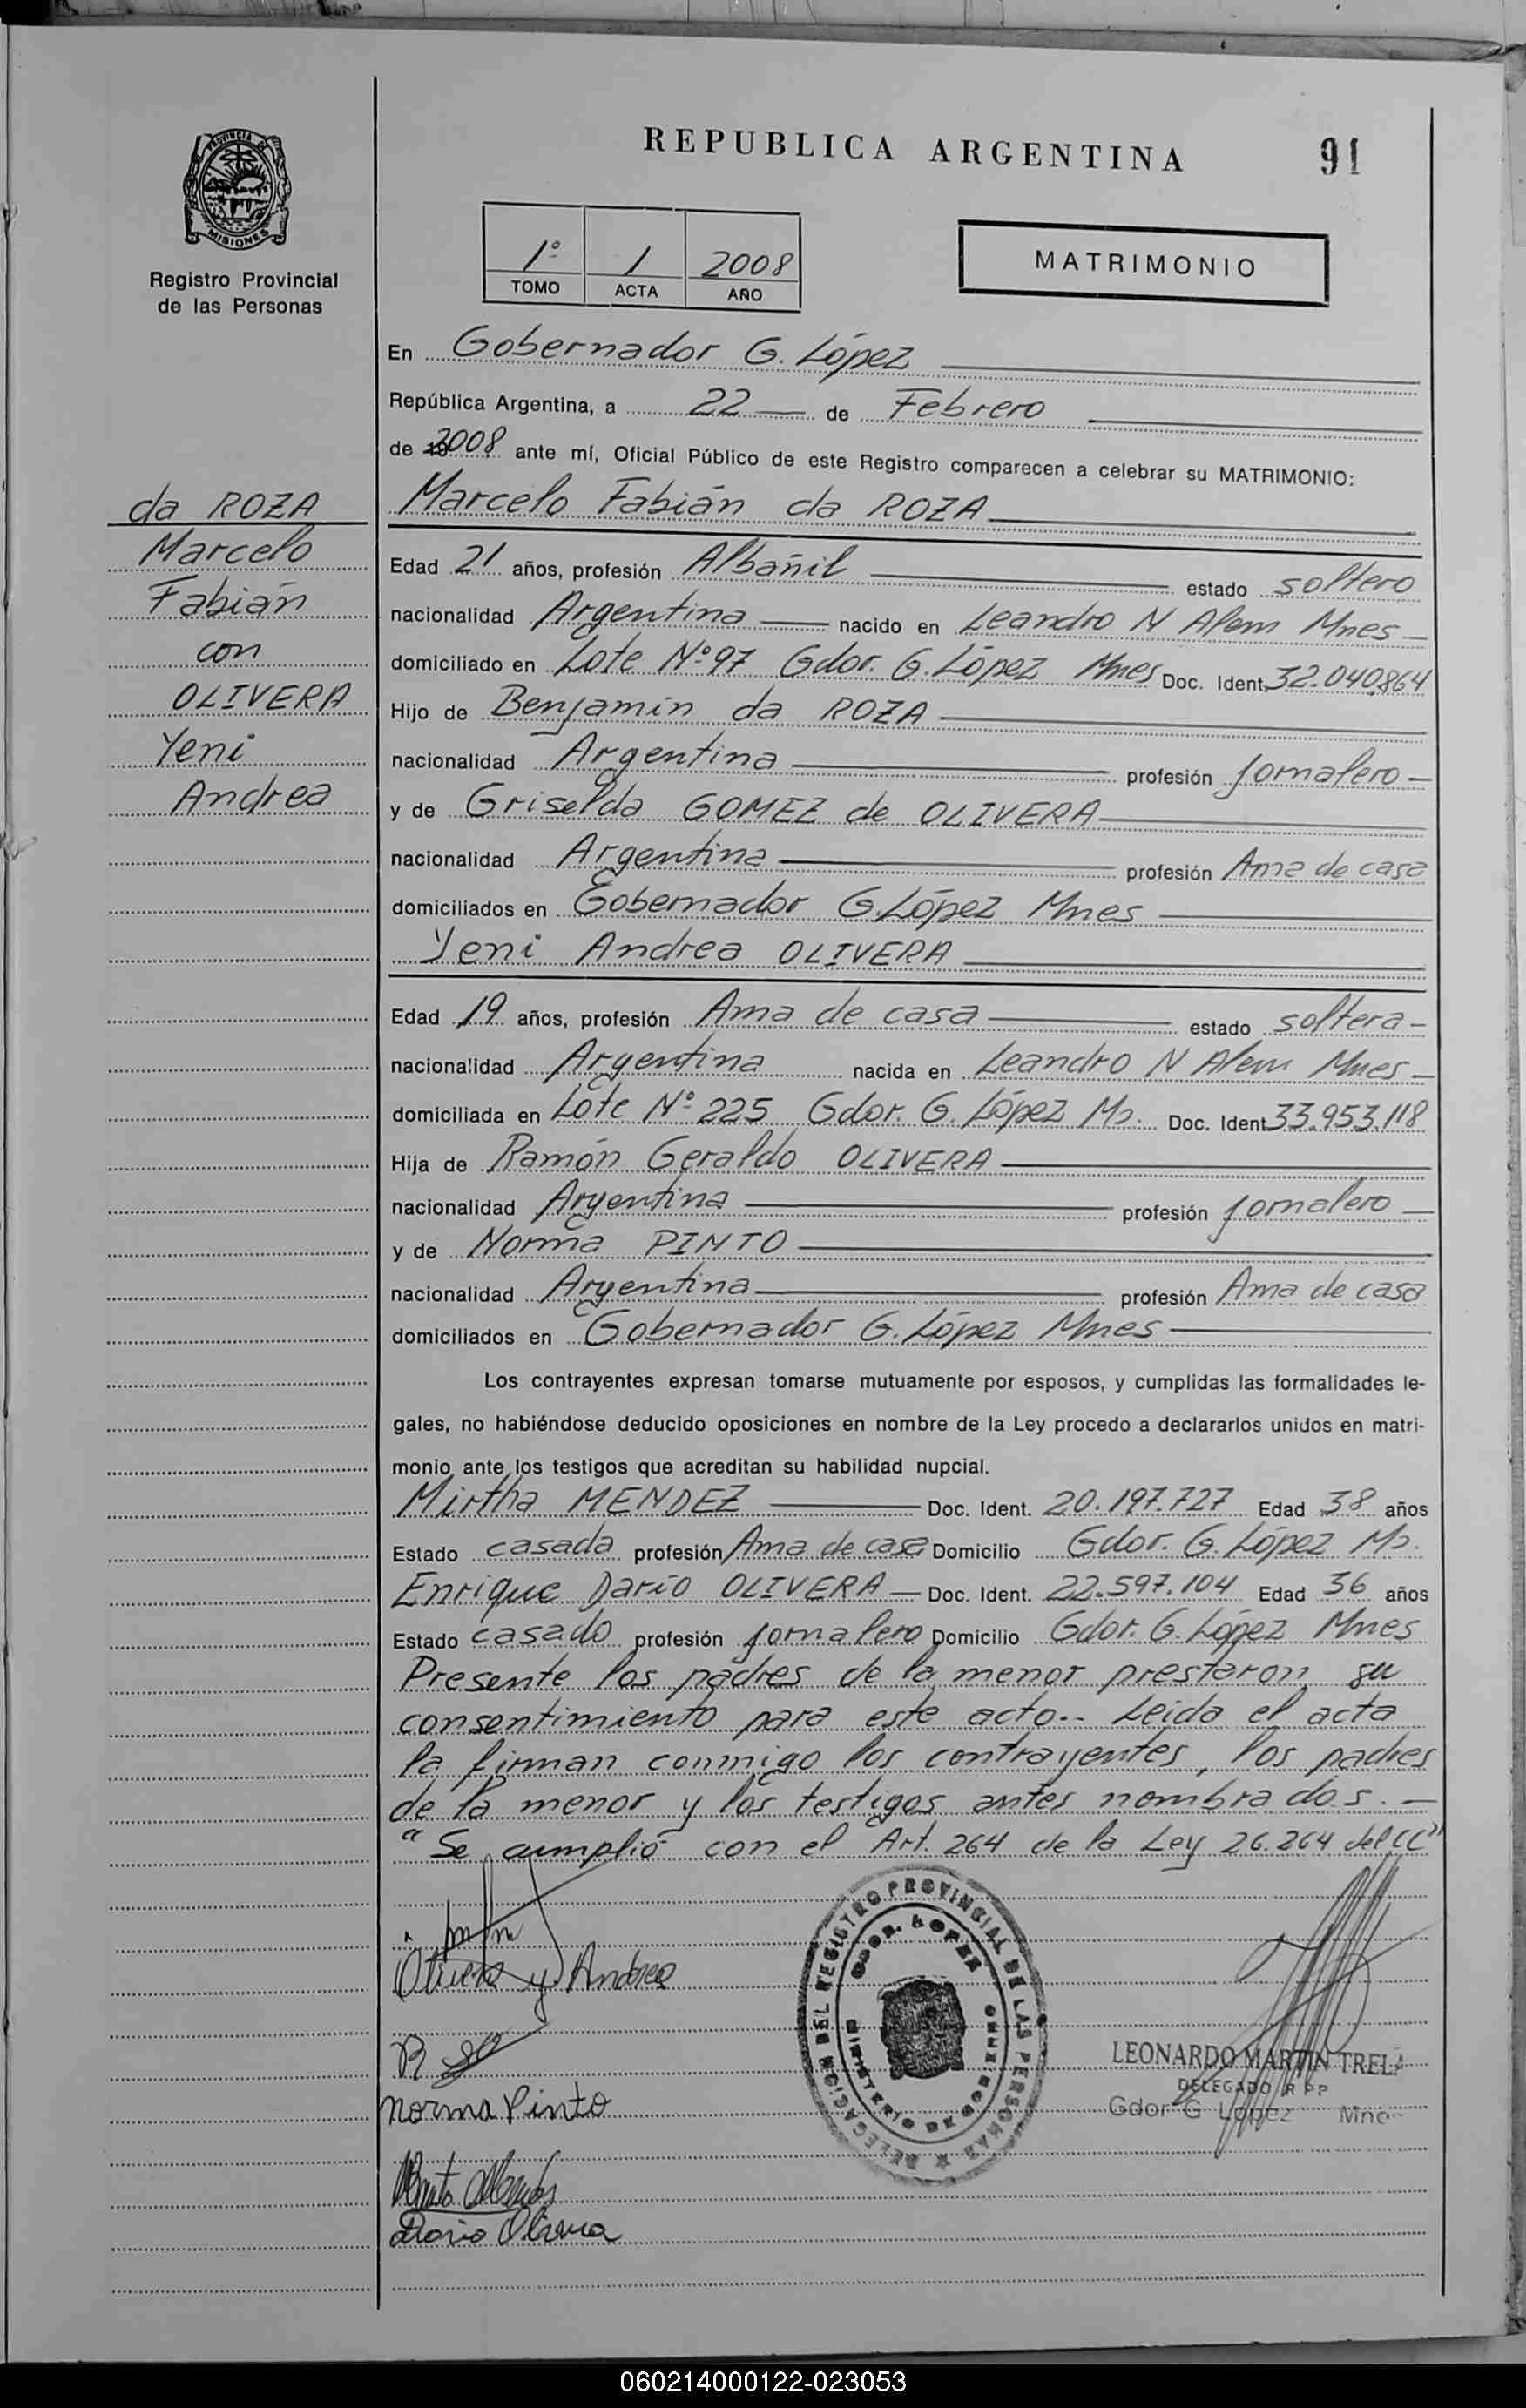 PROVINCIA DE
MISIONES
Registro Provincial
de las Personas
da ROZA
Marcelo
Fabián
con
OLIVERA
Yeni
Andrea
REPUBLICA ARGENTINA
91
1º 1 2008
TOMO ACTA AÑO
MATRIMONIO
En Gobernador G. López
República Argentina, a 22 de Febrero
de 2008 ante mí, Oficial Público de este Registro comparecen a celebrar su MATRIMONIO:
Marcelo Fabián da ROZA
Edad 21 años, profesión Albañil estado soltero
nacionalidad Argentina nacido en Leandro N Alem Mnes
domiciliado en Lote Nº 97 Gdor. G. López Mnes Doc. Ident. 32.040.864
Hijo de Benjamín da ROZA
nacionalidad Argentina profesión jornalero
y de Griselda GOMEZ de OLIVERA
nacionalidad Argentina profesión Ama de casa
domiciliados en Gobernador G. López Mnes
Yeni Andrea OLIVERA
Edad 19 años, profesión Ama de casa estado soltera
nacionalidad Argentina nacida en Leandro N Alem Mnes
domiciliada en Lote Nº 225 Gdor. G. López Ms. Doc. Ident 33.953.118
Hija de Ramón Geraldo OLIVERA
nacionalidad Argentina profesión jornalero
y de Norma PINTO
nacionalidad Argentina profesión Ama de casa
domiciliados en Gobernador G. López Mnes
Los contrayentes expresan tomarse mutuamente por esposos, y cumplidas las formalidades le-
gales, no habiéndose deducido oposiciones en nombre de la Ley procedo a declararlos unidos en matri-
monio ante los testigos que acreditan su habilidad nupcial.
Mirtha MENDEZ Doc. Ident. 20.197.727 Edad 38 años
Estado casada profesión Ama de casa Domicilio Gdor. G. López Ms.
Enrique Darío OLIVERA Doc. Ident. 22.597.104 Edad 36 años
Estado casado profesión jornalero Domicilio Gdor. G. López Mnes
Presente los padres de la menor prestaron su
consentimiento para este acto.- Leída el acta
la firman conmigo los contrayentes, los padres
de la menor y los testigos antes nombrados.-
"Se cumplió con el Art. 264 de la Ley 26.264 del CC"
Olivera y Andrea
DELEGACION DEL REGISTRO PROVINCIAL DE LAS PERSONAS
GDOR. LOPEZ
MINISTERIO DE GOBIERNO
LEONARDO MARTIN TRELA
DELEGADO R P P
Gdor G López Mnes
Norma Pinto
Dario Olivera
060214000122-023053